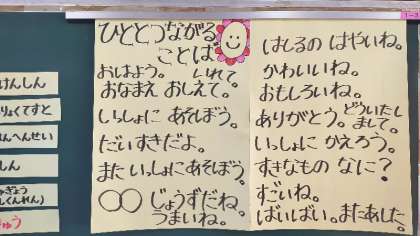 ひととつながる
ことば
おはよう。 いれて
おなまえ おしえて。
いっしょに あそぼう。
だいすきだよ。
また いっしょにあそぼう。
〇〇 じょうずだね。
うまいね。
はしるの はやいね。
かわいいね。
おもしろいね。
ありがとう。どういたし
まして。
いっしょに かえろう。
すきなもの なに?
すごいね。
ばいばい。またあした。
けんしん
りょくてすと
んへんせい
しん
ぎょう
くんれん)